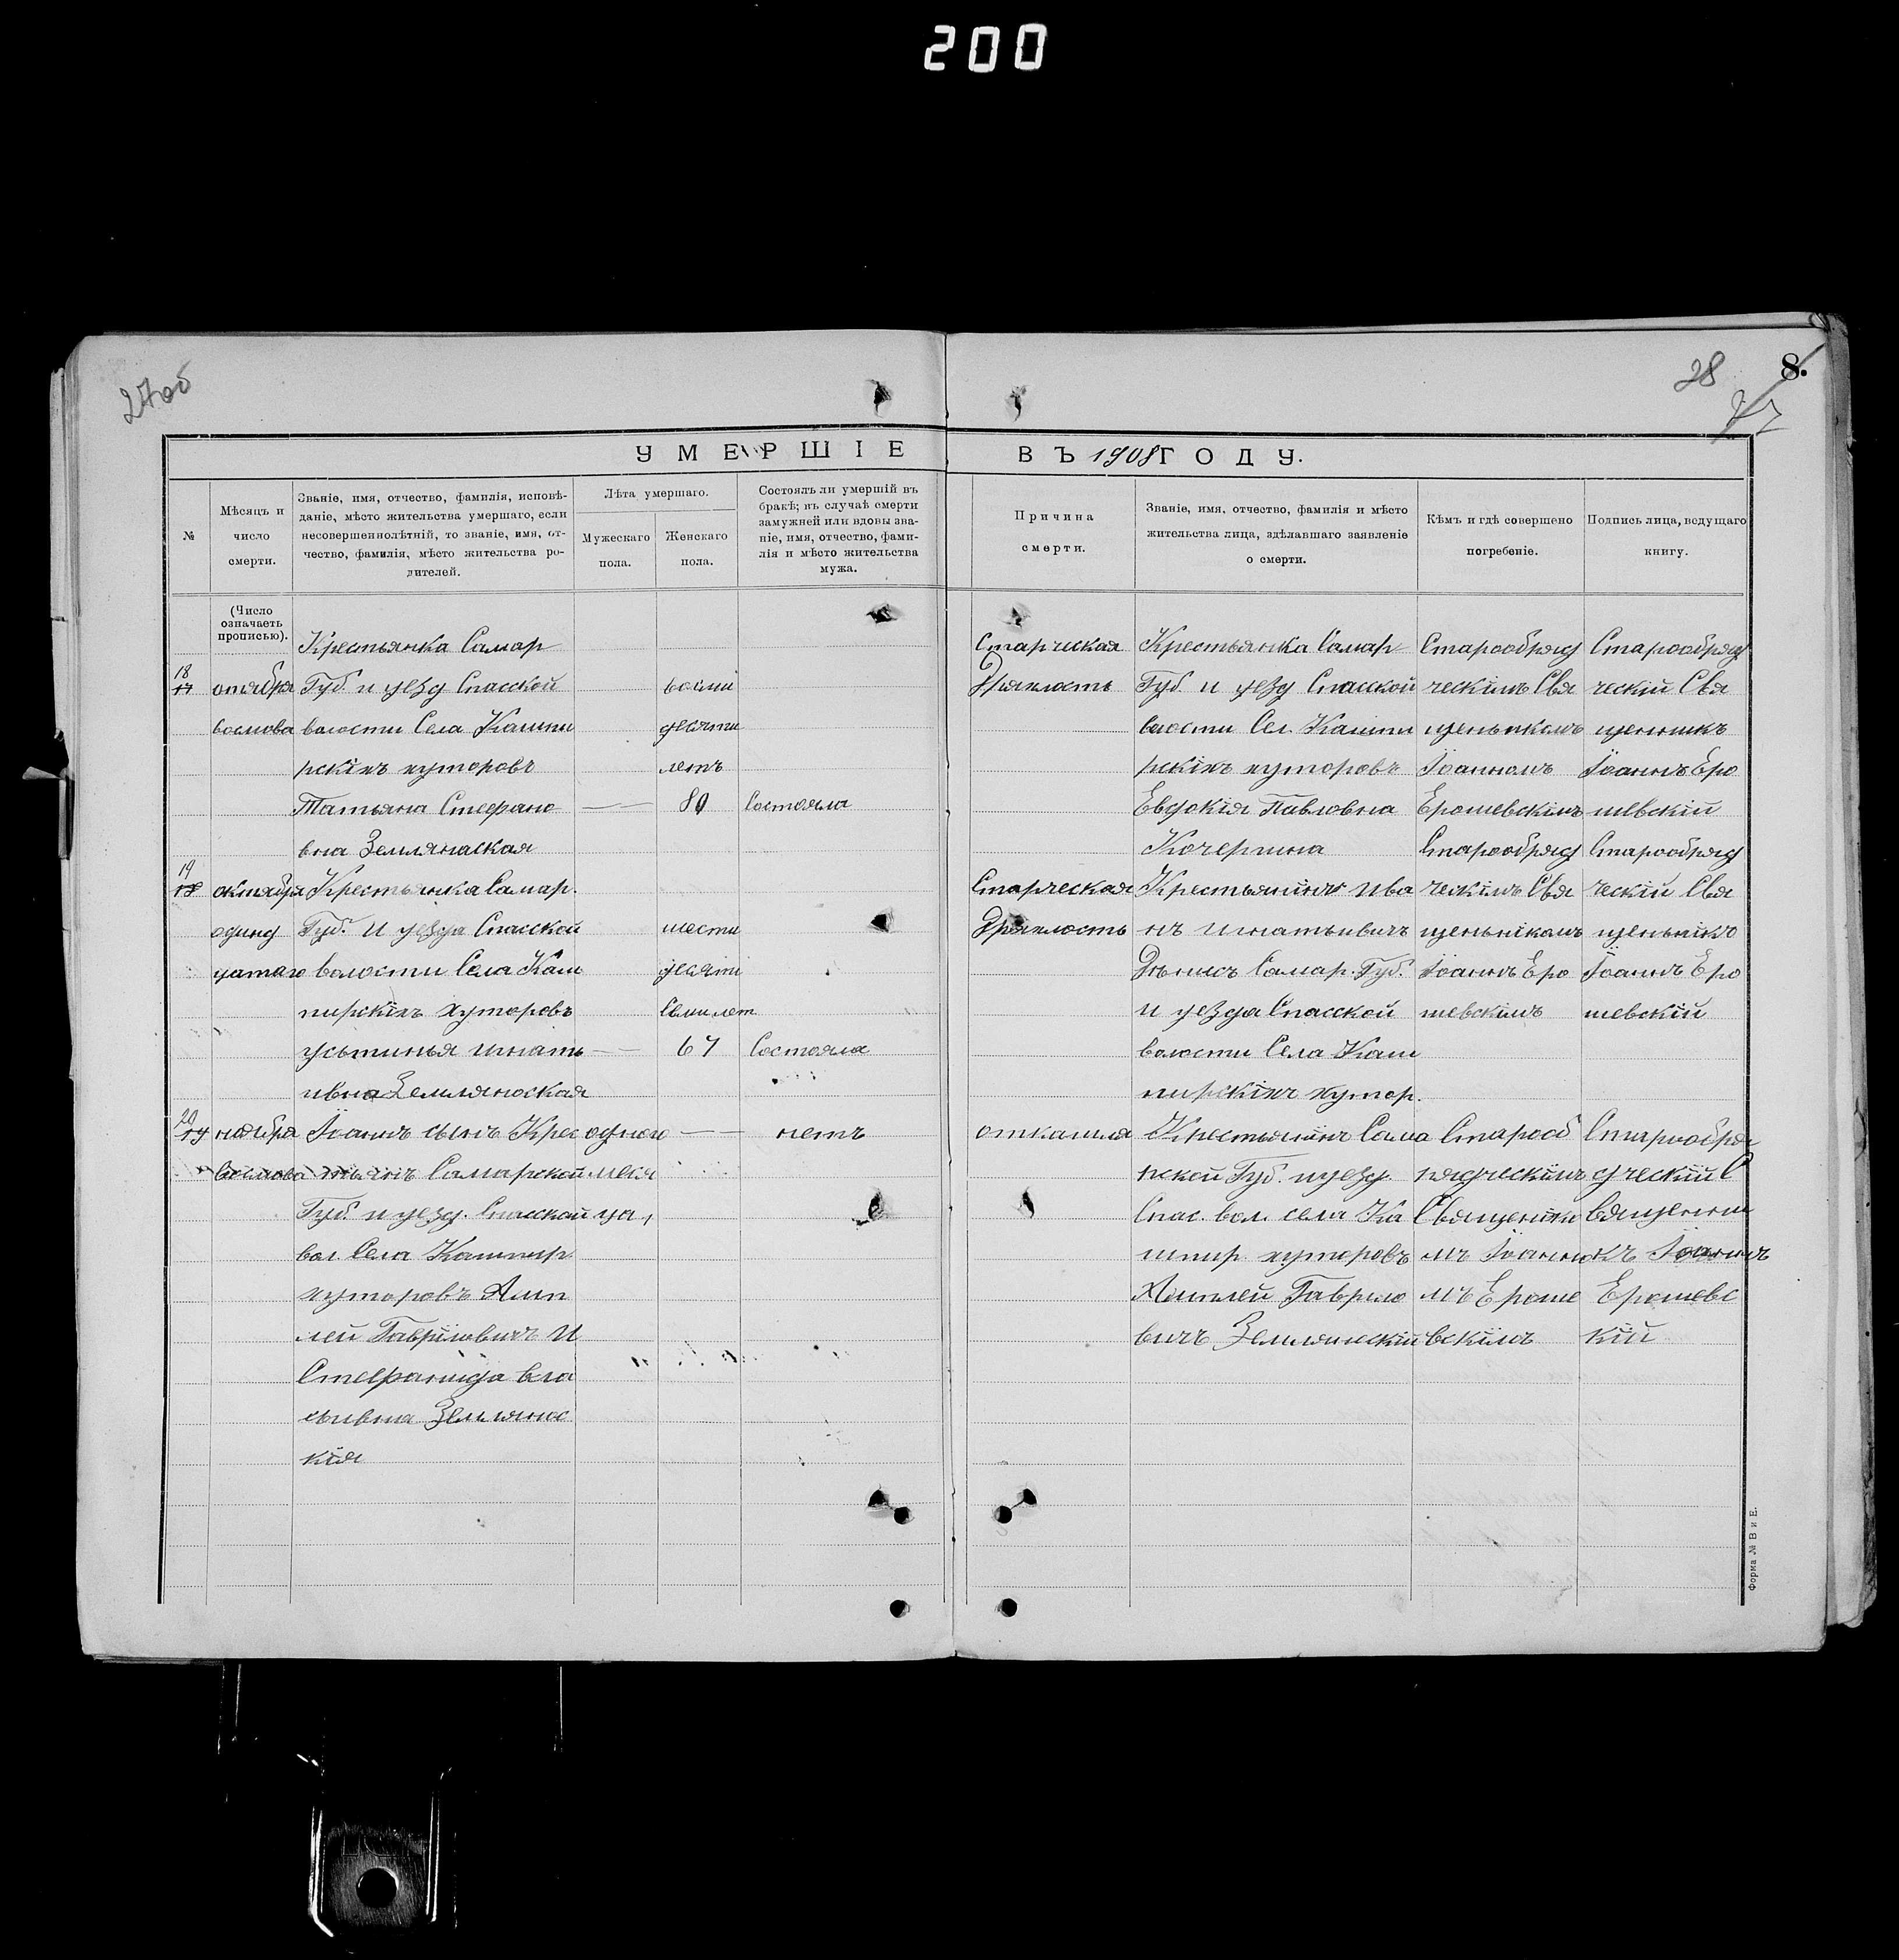 200
27об
28
8.
УМЕРШІЕ ВЪ 1908 ГОДУ.
№
Мѣсяцъ и число смерти.
Званіе, имя, отчество, фамилія, исповѣ-
даніе, мѣсто жительства умершаго, если
несовершеннолѣтній, то званіе, имя, от-
чество, фамилія, мѣсто жительства ро-
дителей.
Лѣта умершаго.
Мужескаго пола.
Женскаго пола.
Состоялъ ли умершій въ
бракѣ; въ случаѣ смерти
замужней или вдовы зва-
ніе, имя, отчество, фами-
лія и мѣсто жительства
мужа.
Причина
смерти.
Званіе, имя, отчество, фамилія и мѣсто
жительства лица, здѣлавшаго заявленіе
о смерти.
Кѣмъ и гдѣ совершено
погребеніе.
Подпись лица, ведущаго
книгу.
(Число
означаеть
прописью).
18
17
отября
восмова
Крестьянка Самар
Губ. и уезд Спасской
волости Села Кашпи
рскіхъ хуторовъ
Татьяна Стефано
вна Землянаская
восми
десяти
летъ
80
Состояла
Старческая
Дряхлость
Крестьянка Самар
Губ. и уезд Спасской
волости Сел. Кашпи
рскіхъ хуторовъ
Евдокія Павловна
Кочергина
Старообряд
ческімъ Свя
щеньикомъ
Іоанномъ
Ерошевскімъ
Старообряд
ческій Свя
щенникъ
Іоаннъ Еро
шевскій
19
18
октября
одинд
цатаго
Крестьянка Самар.
Губ. и уезда Спасской
волости Села Каш
пирскіхъ хуторовъ
Усьтинья Игнать
ивна Земляноская
шести
десяти
Семи лет
67
Состояла
Старческая
Дряхлость
Крестьянінъ Ива
нъ Игнатьивичъ
Дѣнисъ Самар. Губ.
и уезда Спасской
волости Села Каш
пирскіхъ хутор.
Старообряд
ческімъ Свя
щеньнікомъ
Іоаннъ Еро
шевскімъ
Старообряд
ческій Свя
щеньнікъ
Іоаннъ Еро
шевскій
20
19
ноября
Восмова
Іоаннъ сынъ Крес
тьянъ Самарской
Губ. и уезд. Спасской
вол. Села Кашпир
хуторовъ Аmп
лей Гаврііловичъ И
Стефанида Вла
сьивна Землянос
кія
одного
меся
ца,
нетъ
откашля
Крестьянінъ Сама
рской Губ. и уезд.
Спас. вол. села Ка
шпир хуторовъ
Амплей Гаврило
вичъ Земляноскій
Старооб
рядческімъ
Священико
мъ Іоанно
мъ Ероше
вскімъ
Старообря
дческій С
вященни
къ Іоаннъ
Ерошевс
кій
Форма № В и Е.